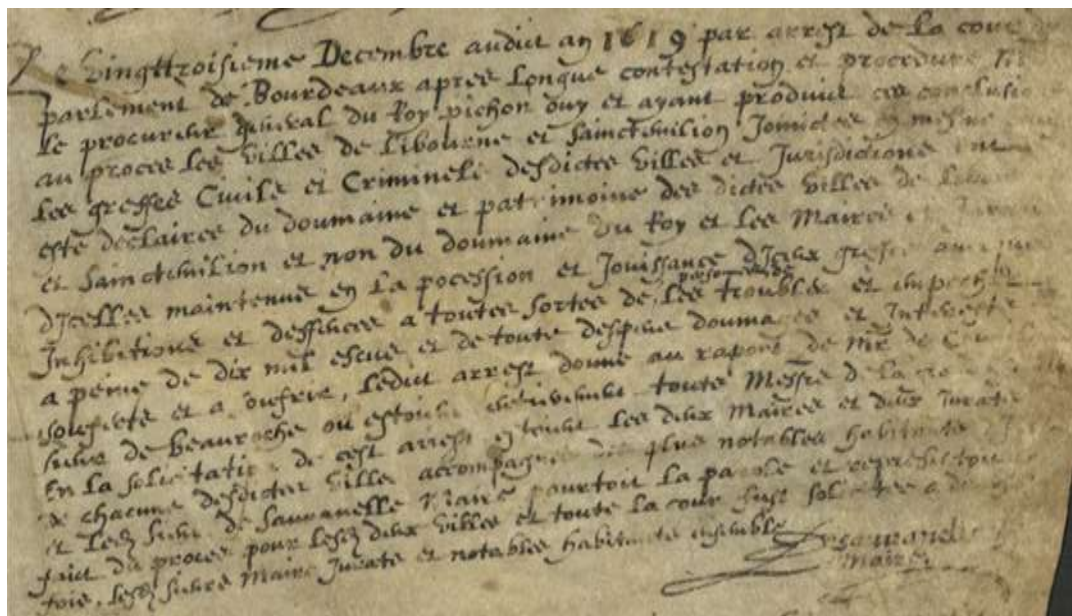 Le vingttroisieme Decembre audict an 1619 par arrest de la cour de
parlement de Bourdeaux apres longue contestation et procedure
le procureur general du Roy pichon ouy et ayant produict ces conclusio
au proces les villes de Libourne et Sainctemilion Joinctes en mesme
les greffes Civilz et Criminelz desdictes villes et Jurisdictions ont
esté declaires du doumaine et patrimoine des dictes villes de Libour
et Sainctemilion et non du doumaine du Roy et les Maires et Jurats
dicelles maintenus en la pocession et Jouissance diceux greffes avecques
Inhibitions et deffences a toutes sortes de personnes de les troubler et empecher
a peine de dix mil escus et de toute despens doumages et Interestz
soufertz et a soufrir, ledict arrest donne au raport de Mr de
sieur de Beauroche ou estoient toute Messrs de la
En la solicitation de cest arrest estoient les deux Maires et deux Jurats
de chacune desdictes villes accompagnes des plus notables habitants
et ledz sieur de Sauvanelle Maire pourtoit la parole et represantoit
faict du proces pour lesdz deux villes et toute la cour fust solicitee a
tois, lesdz sieurs Maire Juratz et notables habitants ensemble
Sauvanelle
Maire